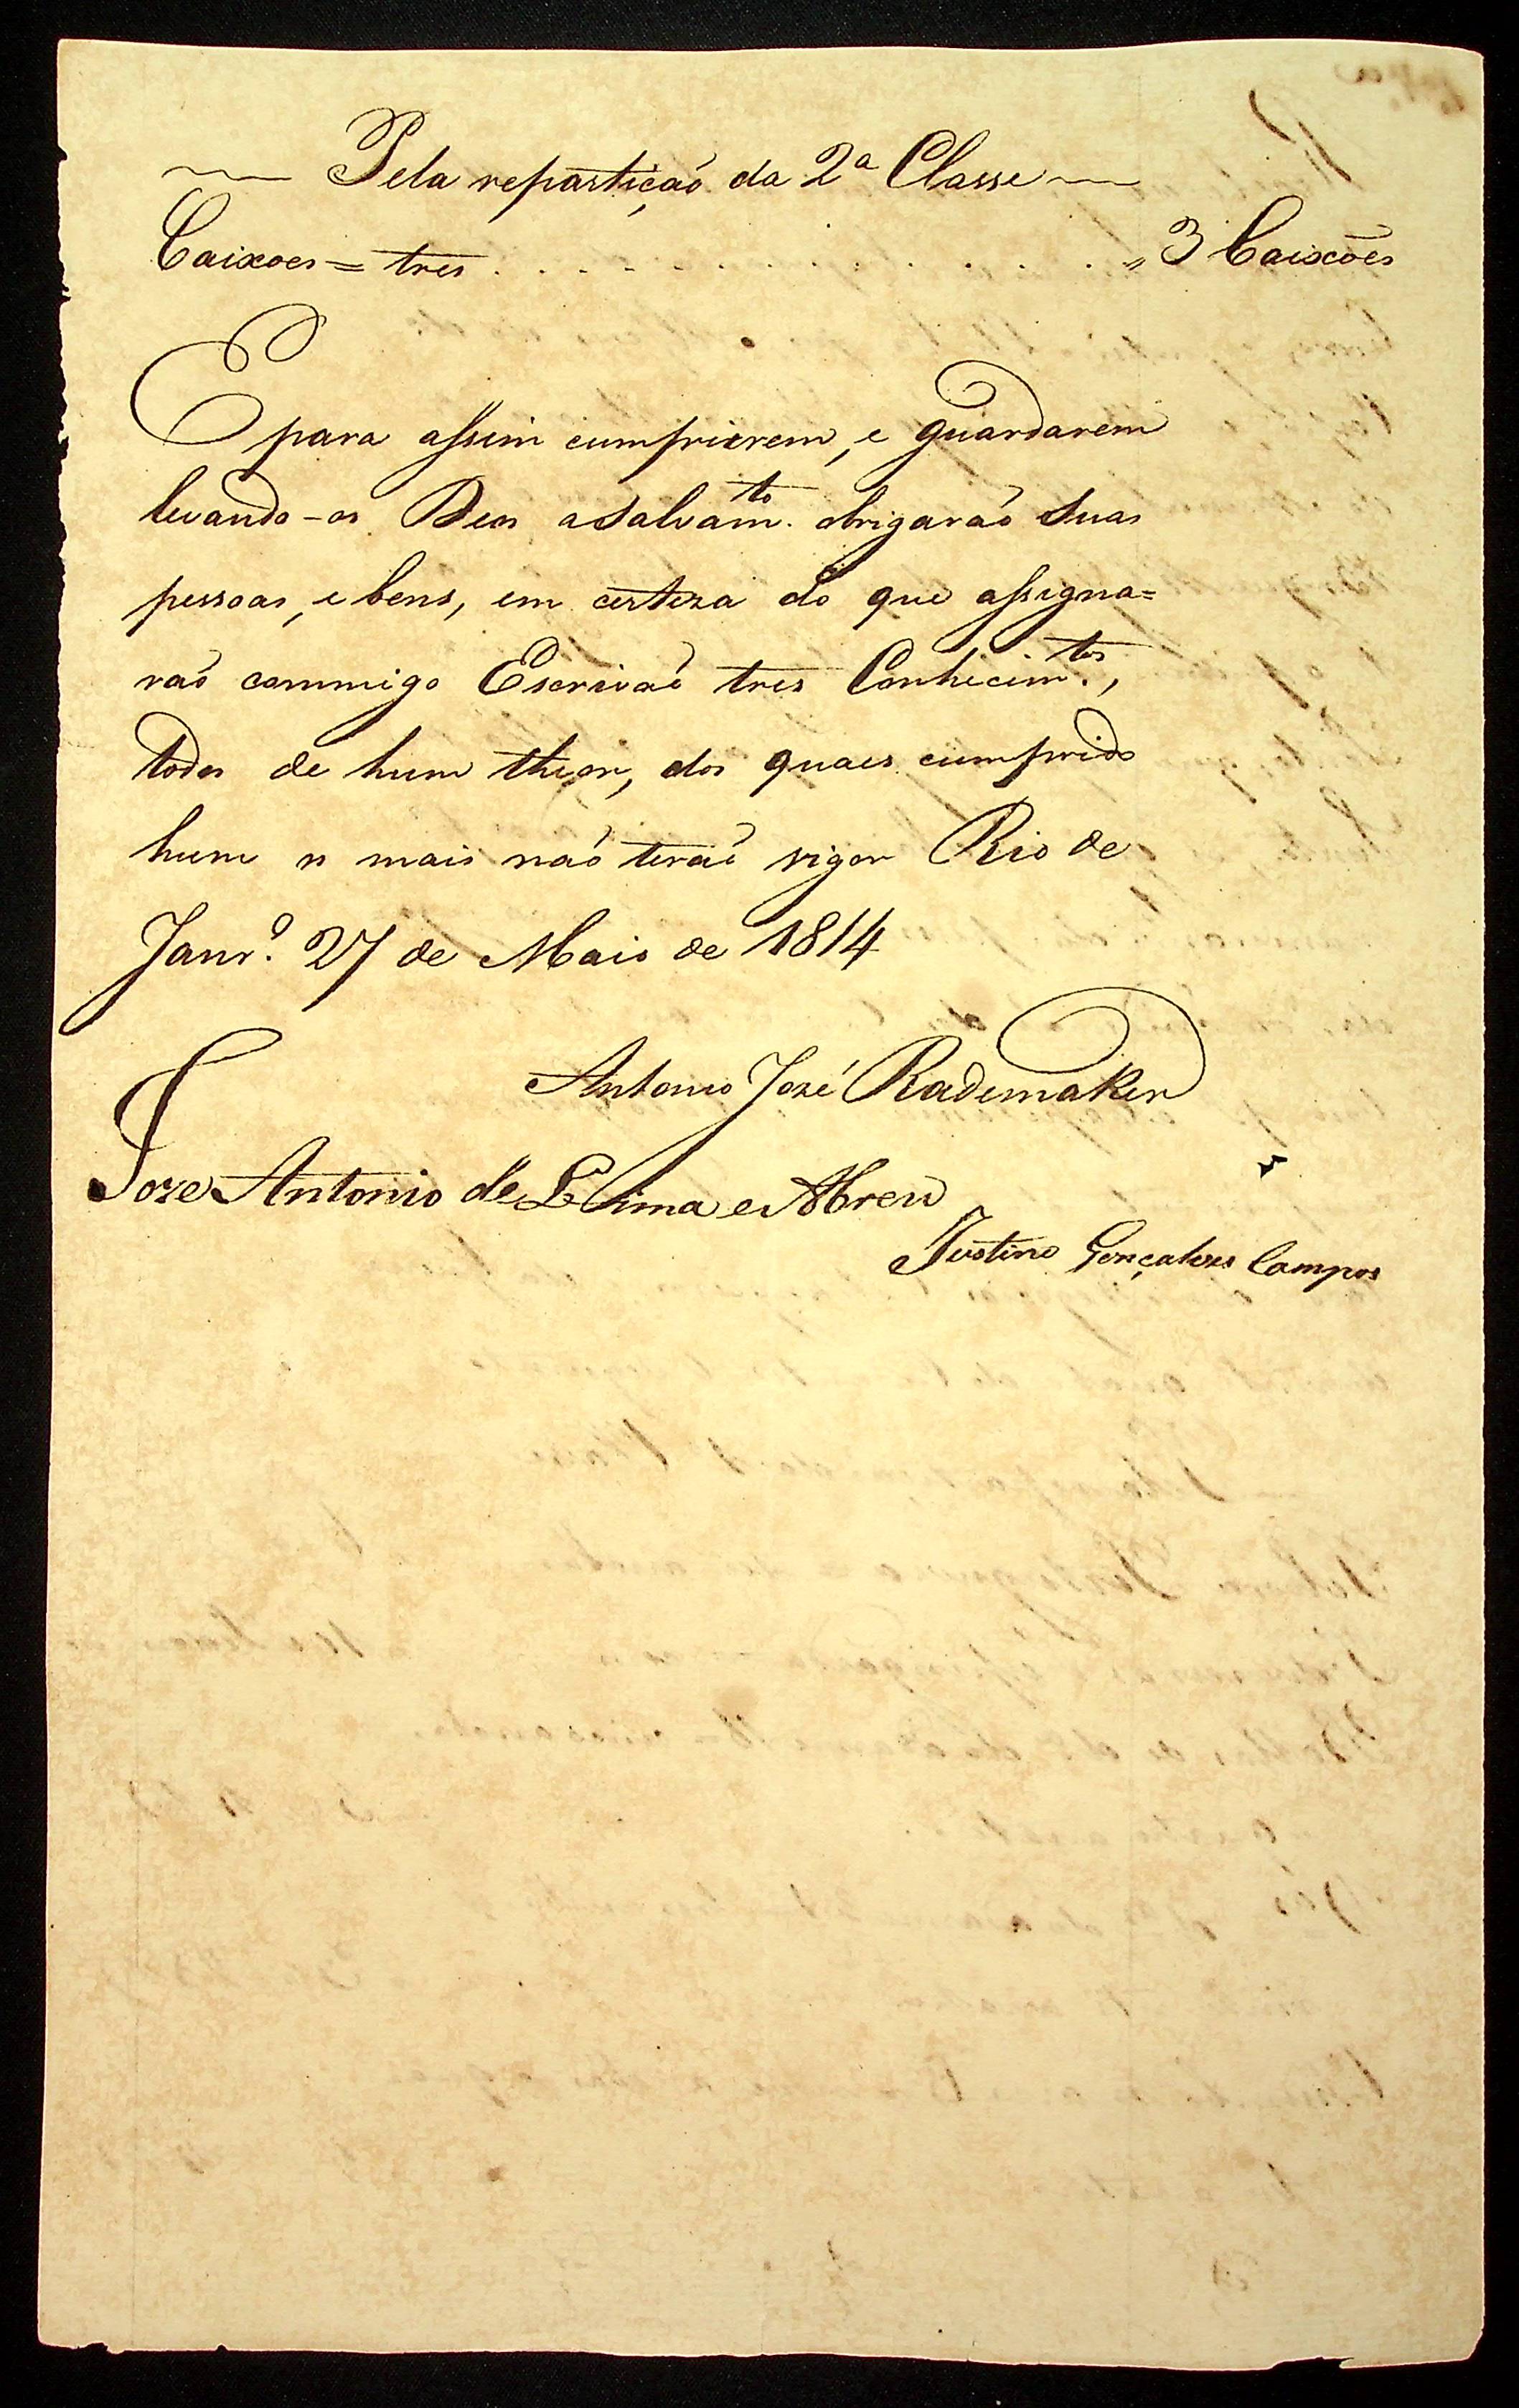 Pela repartição da 2ª Classe
Caixoes = tres . . . . . . . . . . . . . . . . „ 3 Caixões
E para assim cumprirem, e guardarem
levando-os Deos a Salvam.to obrigarão Suas
pessoas, e bens, em certeza do que assigna=
rão commigo Escrivão tres Conhecim.tos,
todos de hum theor, dos quaes cumprido
hum os mais não terão vigor Rio de
Janr.º 27 de Maio de 1814
Antonio José Rademaker
Joze Antonio de Lima e Abreu
Justino Gonçalves Campos